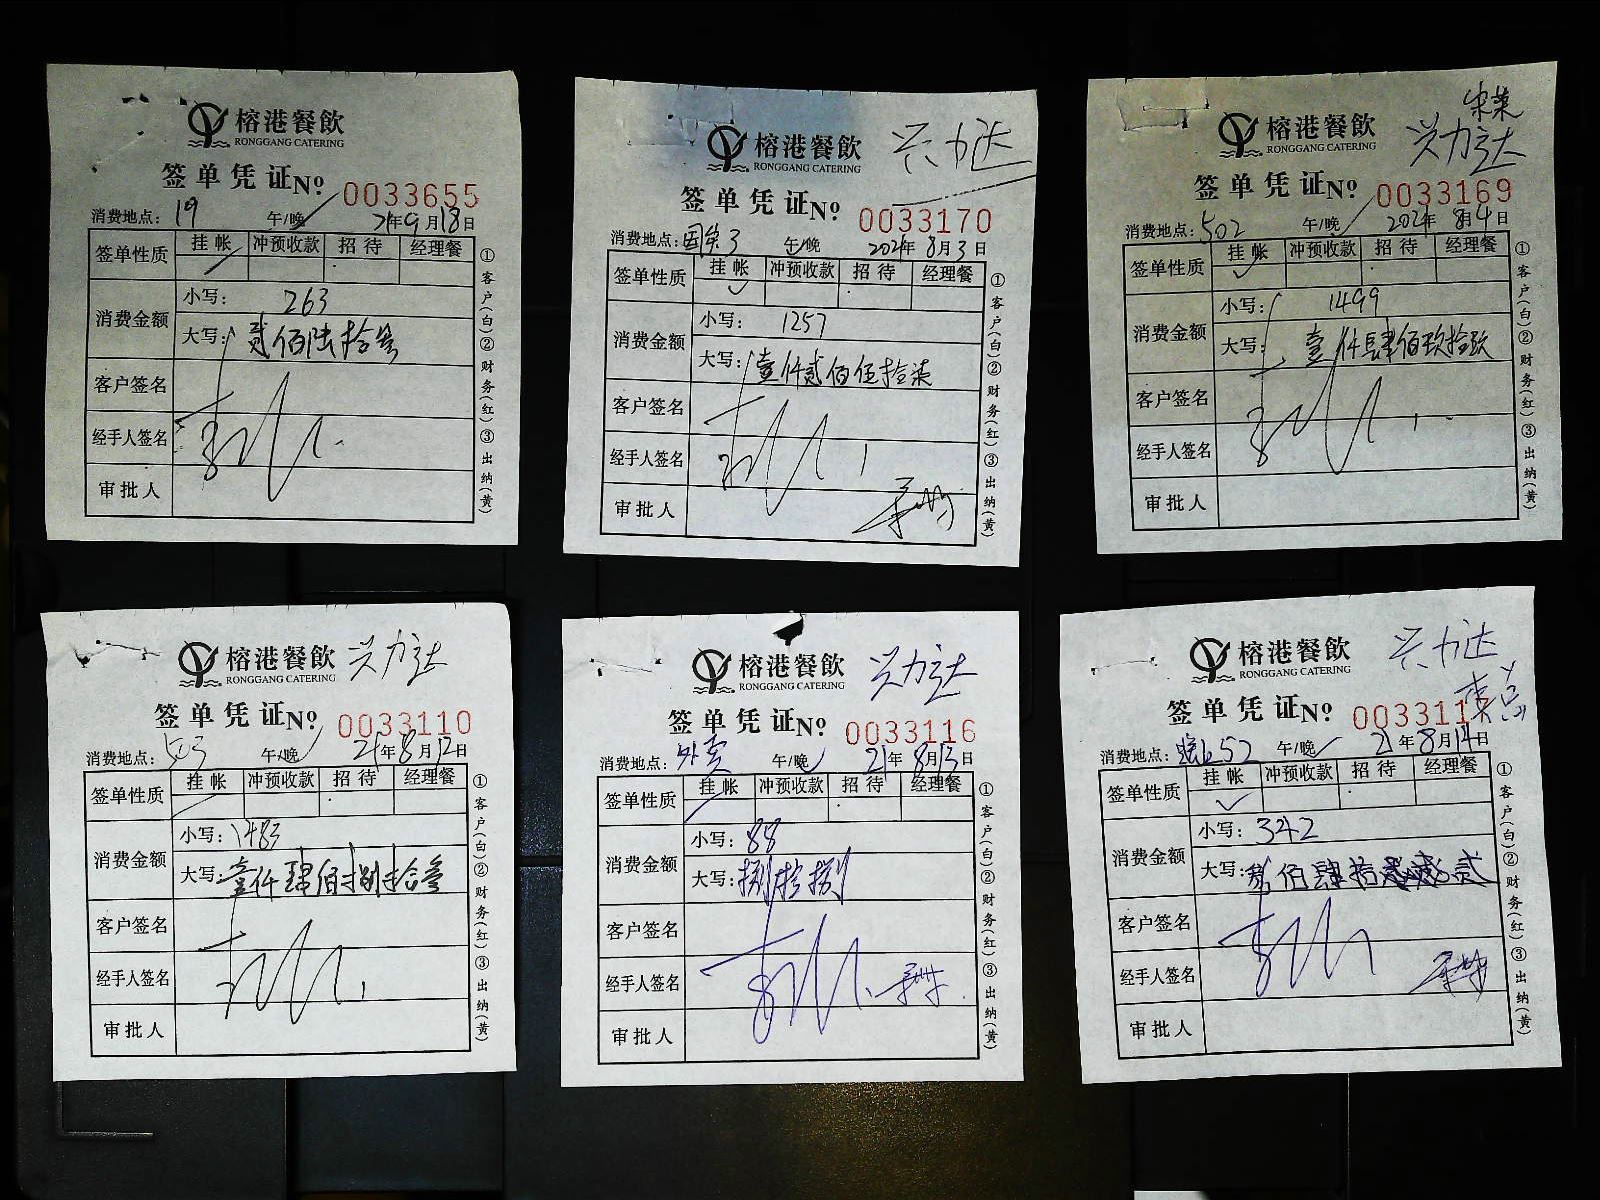 榕港餐飲
RONGGANG CATERING
签单凭证 No 0033655
消费地点: 19 午/晚 21年9月18日
签单性质 挂帐 冲预收款 招待 经理餐
消费金额 小写: 263
大写: 贰佰陆拾叁
客户签名
经手人签名
审批人
①客户(白)②财务(红)③出纳(黄)
榕港餐飲 兴力达
RONGGANG CATERING
签单凭证 No 0033170
消费地点: 午/晚 2021年8月3日
签单性质 挂帐 冲预收款 招待 经理餐
消费金额 小写: 1257
大写: 壹仟贰佰伍拾柒
客户签名
经手人签名
审批人
①客户(白)②财务(红)③出纳(黄)
榕港餐飲 兴力达
RONGGANG CATERING
签单凭证 No 0033169
消费地点: 502 午/晚 2021年8月4日
签单性质 挂帐 冲预收款 招待 经理餐
消费金额 小写: 1499
大写: 壹仟肆佰玖拾玖
客户签名
经手人签名
审批人
①客户(白)②财务(红)③出纳(黄)
榕港餐飲 兴力达
RONGGANG CATERING
签单凭证 No 0033110
消费地点: 午/晚 21年8月12日
签单性质 挂帐 冲预收款 招待 经理餐
消费金额 小写: 1483
大写: 壹仟肆佰捌拾叁
客户签名
经手人签名
审批人
①客户(白)②财务(红)③出纳(黄)
榕港餐飲 兴力达
RONGGANG CATERING
签单凭证 No 0033116
消费地点: 外卖 午/晚 21年8月13日
签单性质 挂帐 冲预收款 招待 经理餐
消费金额 小写: 88
大写: 捌拾捌
客户签名
经手人签名
审批人
①客户(白)②财务(红)③出纳(黄)
榕港餐飲 兴力达
RONGGANG CATERING
签单凭证 No 003311
消费地点: 午/晚 21年8月14日
签单性质 挂帐 冲预收款 招待 经理餐
消费金额 小写: 342
大写: 叁佰肆拾贰
客户签名
经手人签名
审批人
①客户(白)②财务(红)③出纳(黄)